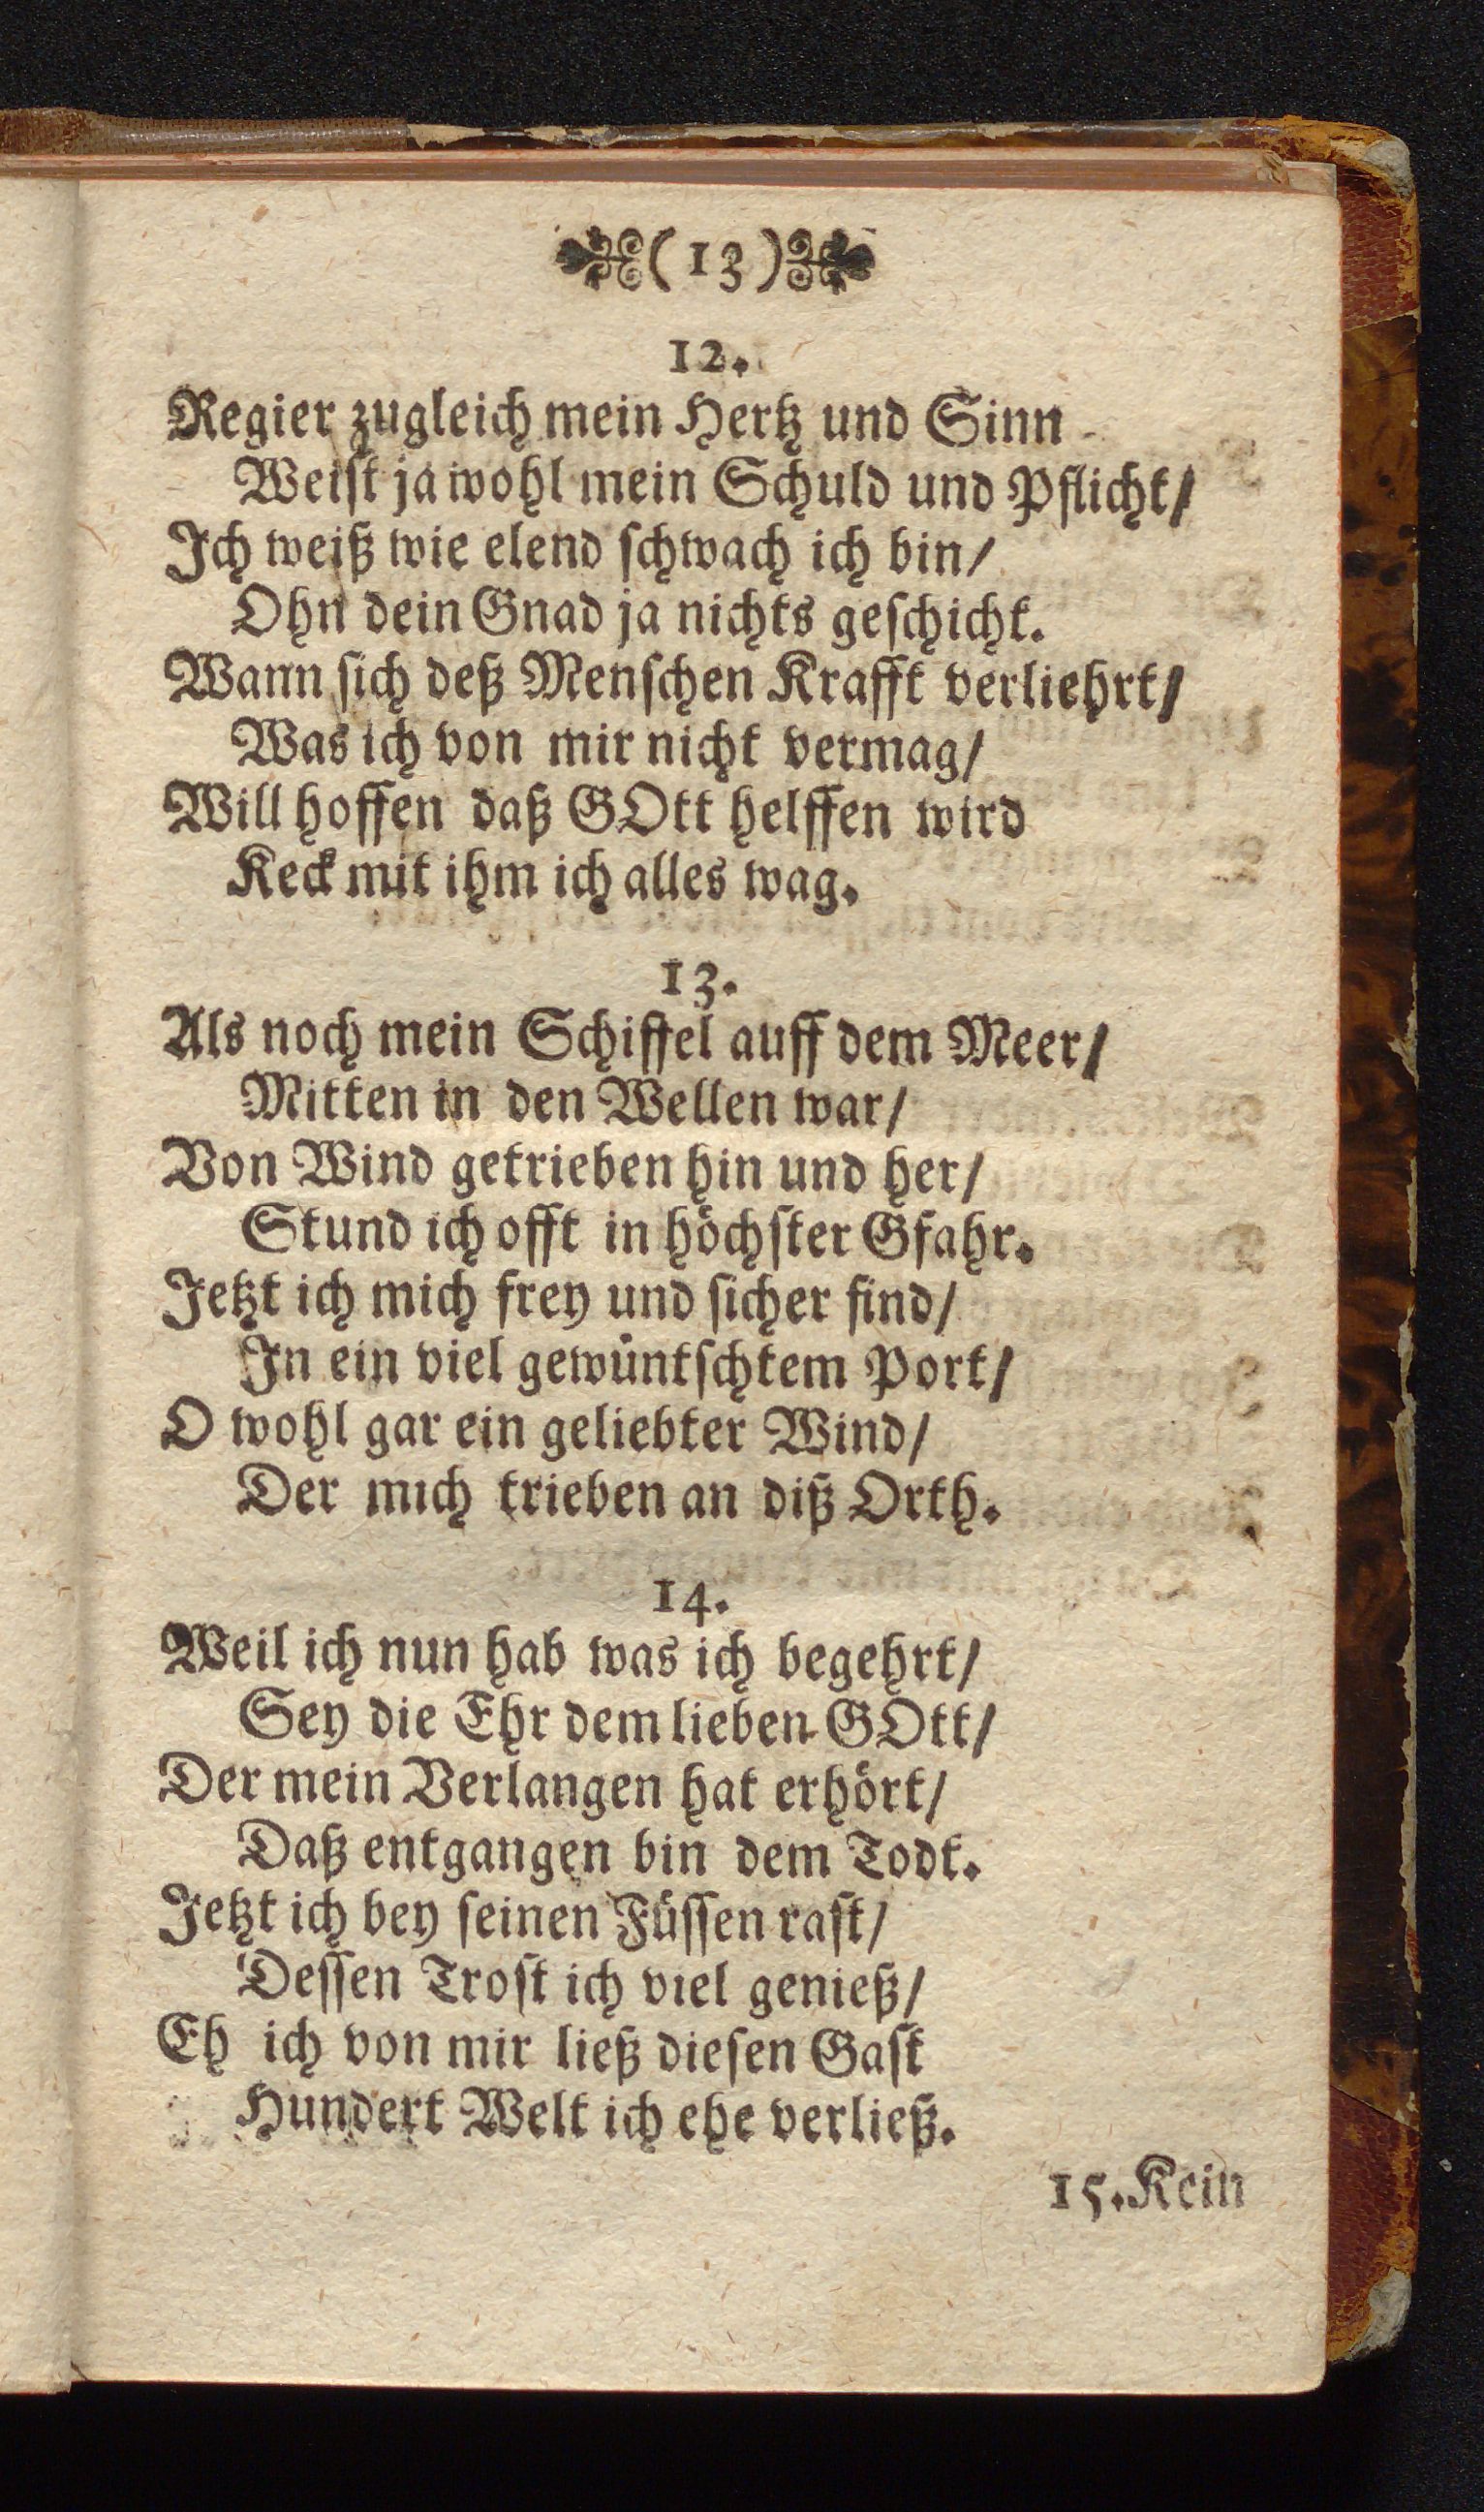 (13)
12.
Regier zugleich mein Hertz und Sinn
Weist ja wohl mein Schuld und Pflicht/
Ich weiß wie elend schwach ich bin/
Ohn dein Gnad ja nichts geschicht.
Wann sich deß Menschen Krafft verliehrt/
Was ich von mir nicht vermag/
Will hoffen daß GOtt helffen wird
Keck mit ihm ich alles wag.
13.
Als noch mein Schiffel auff dem Meer/
Mitten in den Wellen war/
Von Wind getrieben hin und her/
Stund ich offt in höchster Gfahr.
Jetzt ich mich frey und sicher find/
In ein viel gewüntschtem Port/
O wohl gar ein geliebter Wind/
Der mich trieben an diß Orth.
14.
Weil ich nun hab was ich begehrt/
Sey die Ehr dem lieben GOtt/
Der mein Verlangen hat erhört/
Daß entgangen bin dem Todt.
Jetzt ich bey seinen Füssen rast/
Dessen Trost ich viel genieß/
Eh ich von mir ließ diesen Gast
Hundert Welt ich ehe verließ.
15. Kein